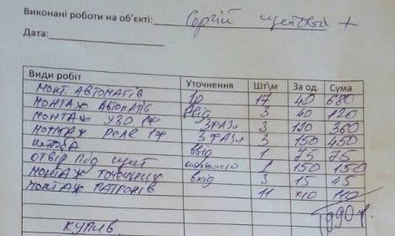 Виконані роботи на об'єкті: Сергій щитова +
Дата:
Види робіт Уточнення Шт\м За од. Сума
Монт. автоматів 1р 17 40 680
Монтаж автоматів 3 40 120
Монтаж УЗО 1Ф 3 фази 3 120 360
Монтаж реле 1Ф 3 фази 3 150 450
Штроба 1 75 75
Отвір під щит 1 150 150
Монтаж вхід 3 15 45
Монтаж патронів 11 x10 110
1990 г.
купив